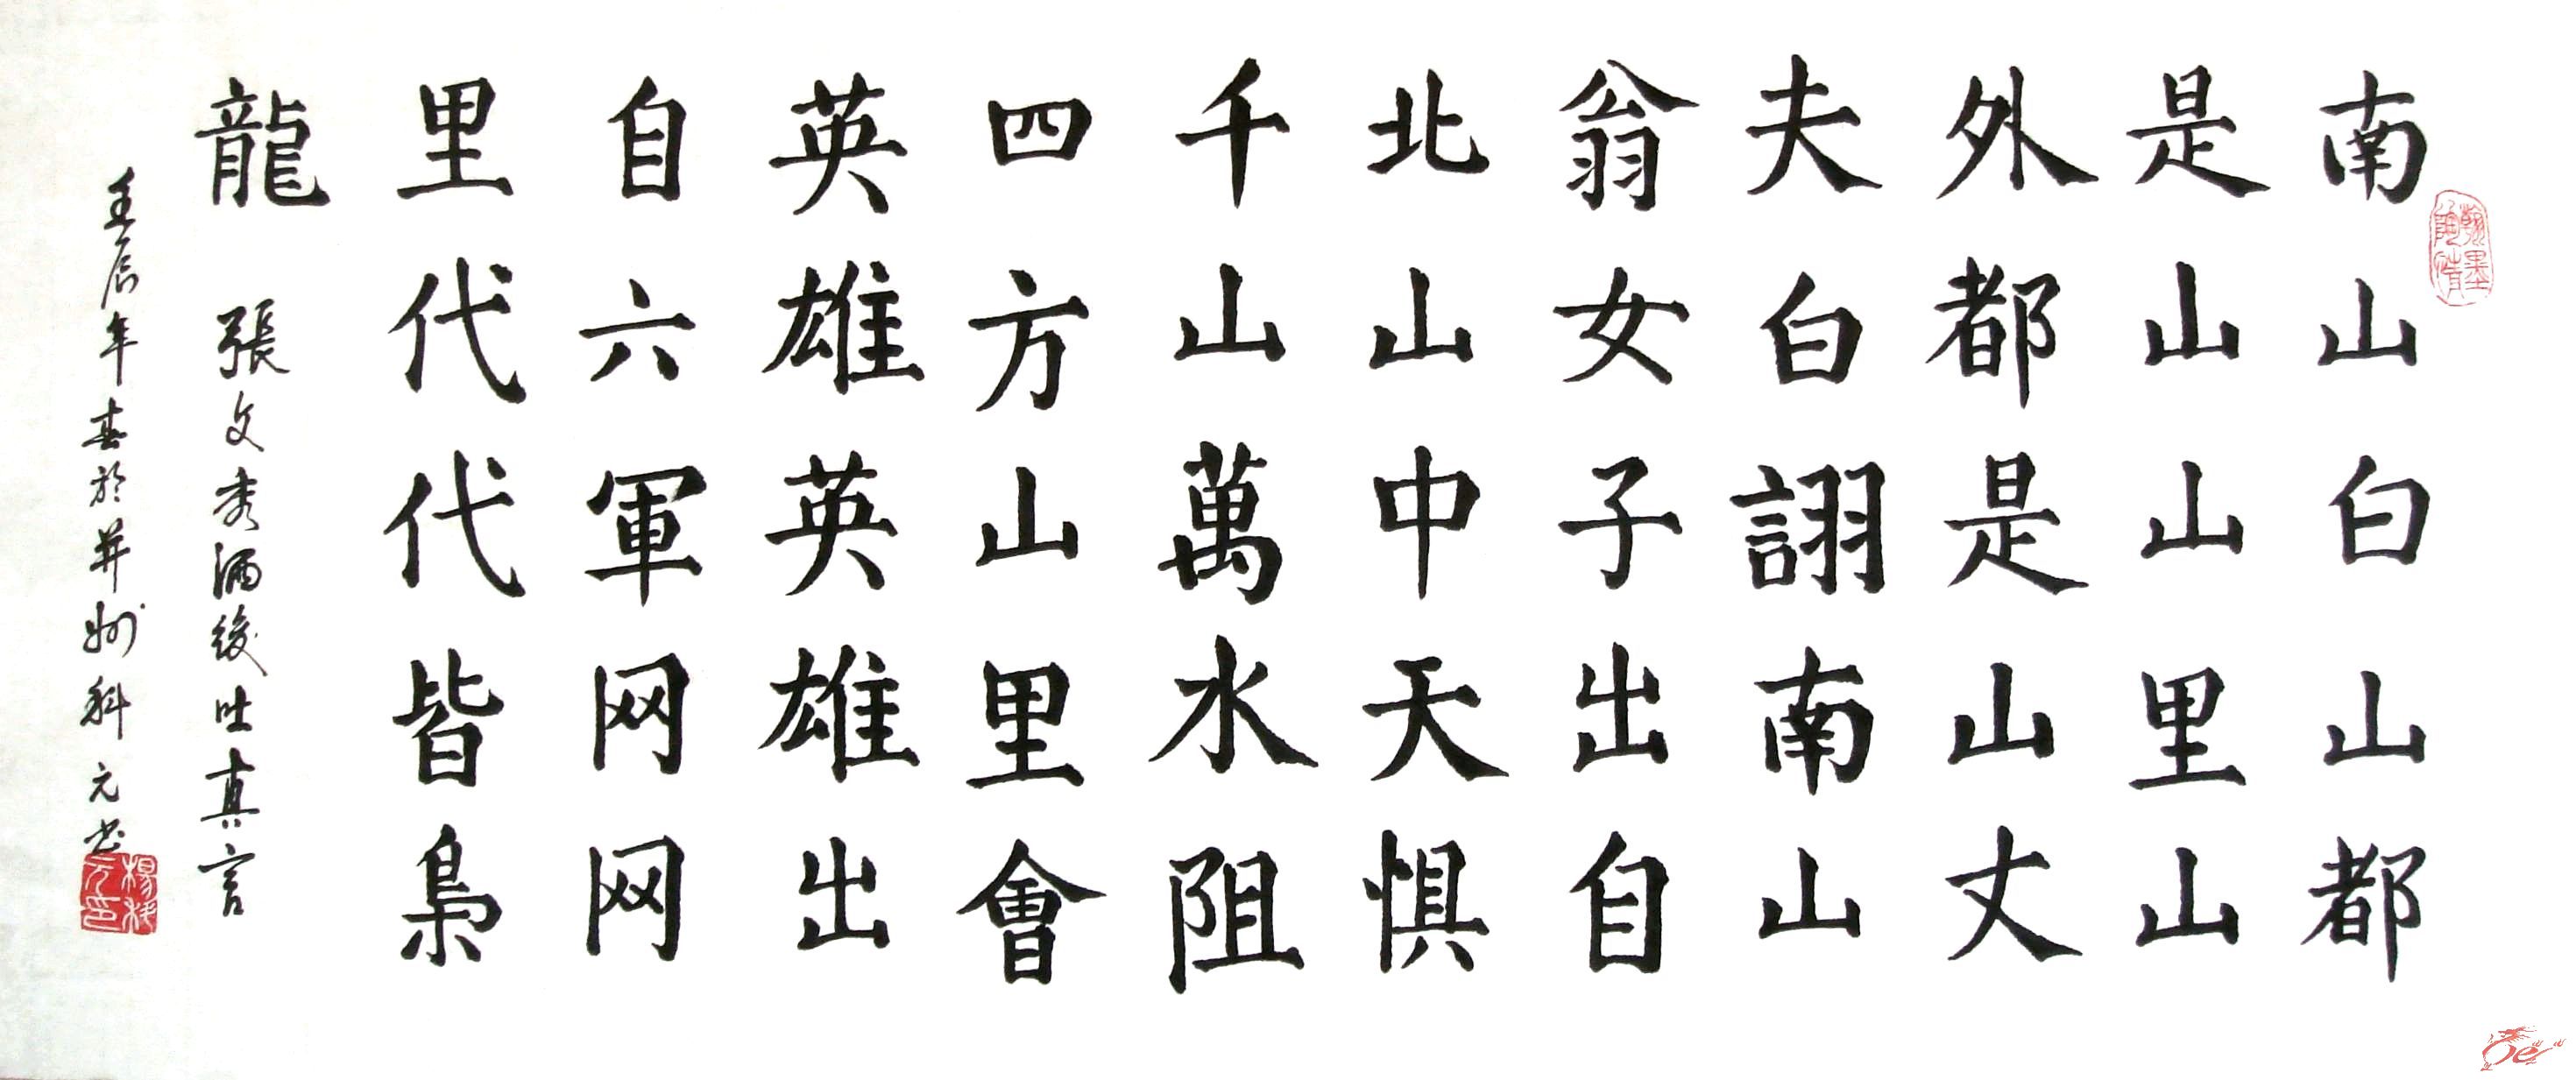 南山白山都
是山山里山
外都是山丈
夫白詡南山
翁女子出自
北山中天惧
千山萬水阻
四方山里會
英雄英雄出
自六軍网网
里代代皆梟
龍
張文秀酒後吐真言
壬辰年春於并州科元书
翰墨
陶情
楊科
元印